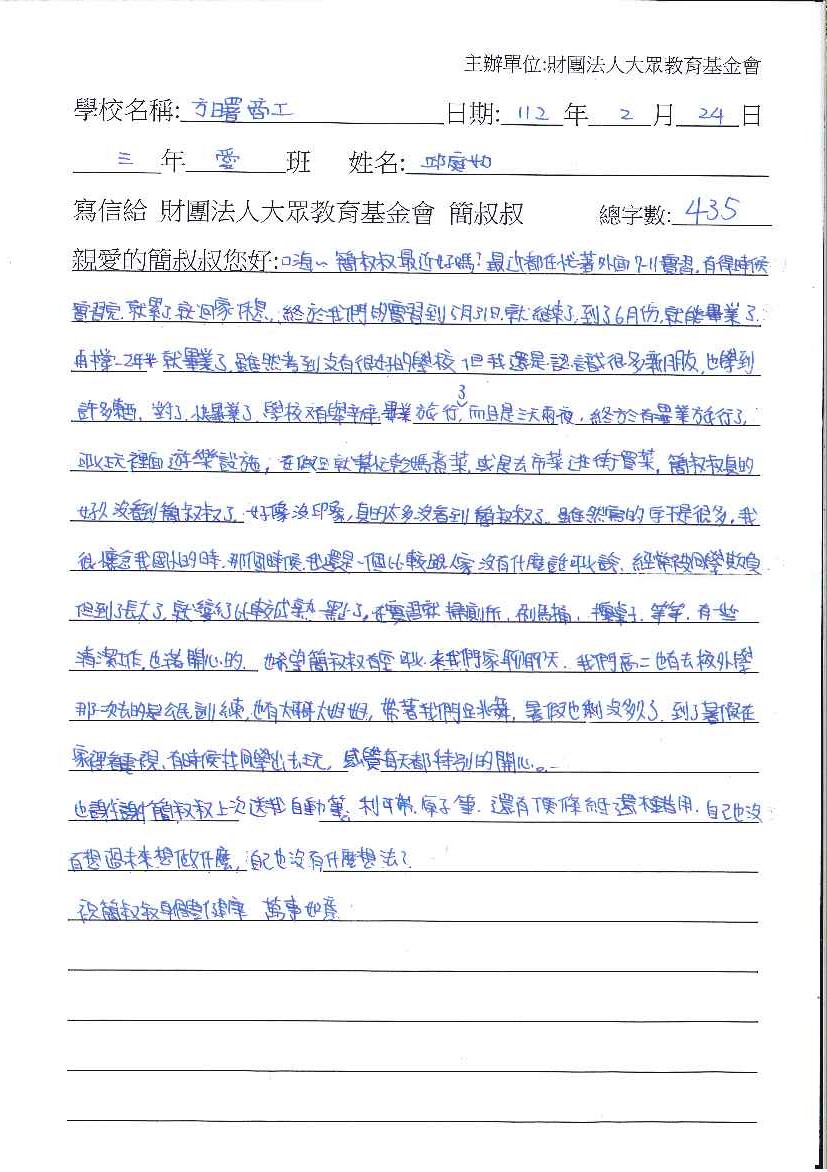 主辦單位:財團法人大眾教育基金會
學校名稱: 方曙商工 日期: 112 年 2 月 24 日
三 年 愛 班 姓名: 邱庭如
寫信給 財團法人大眾教育基金會 簡叔叔 總字數: 435
親愛的簡叔叔您好: 嗨~ 簡叔叔最近好嗎?最近都在忙著外面7-11實習,有得時候
實習完,就累了,就回家休息,終於我們的實習到5月31日,就結束了,到了6月份,就能畢業了,
再撐一年半就畢業了,雖然考到沒有很好的學校,但我還是認識很多新朋友,也學到
許多東西,對了,快畢業了,學校有舉辦畢業旅行,3而且是三天兩夜,終於有畢業旅行了,
可以玩裡面遊樂設施,在假日就幫忙乾媽煮菜,或是去市菜進街買菜,簡叔叔真的
好久沒看到簡叔叔了,好像沒印象,真的太多沒看到簡叔叔了,雖然寫的字不是很多,我
很懷念我國小的時,那個時候,我還是一個比較 沒有什麼誰可以說,經常被同學欺負
但到了長大了,就變得比較成熟一點了,在實習就掃廁所,刷馬桶,擦桌子,等等,有一些
清潔工作,也滿開心的,也希望簡叔叔有空可以來我們家聊聊天,我們高二也有去校外學
那一次去的是公民訓練,也有大哥大姐姐,帶著我們跳舞,暑假也剩沒多久了,到了暑假在
家裡看電視,有時候找同學出去玩,感覺每天都特別的開心。
也謝謝簡叔叔上次送我自動筆,利可帶,原子筆,還有便條紙,還 借用,自己也沒
有想過未來想做什麼,自己也沒有什麼想法?
祝簡叔叔身體健康 萬事如意